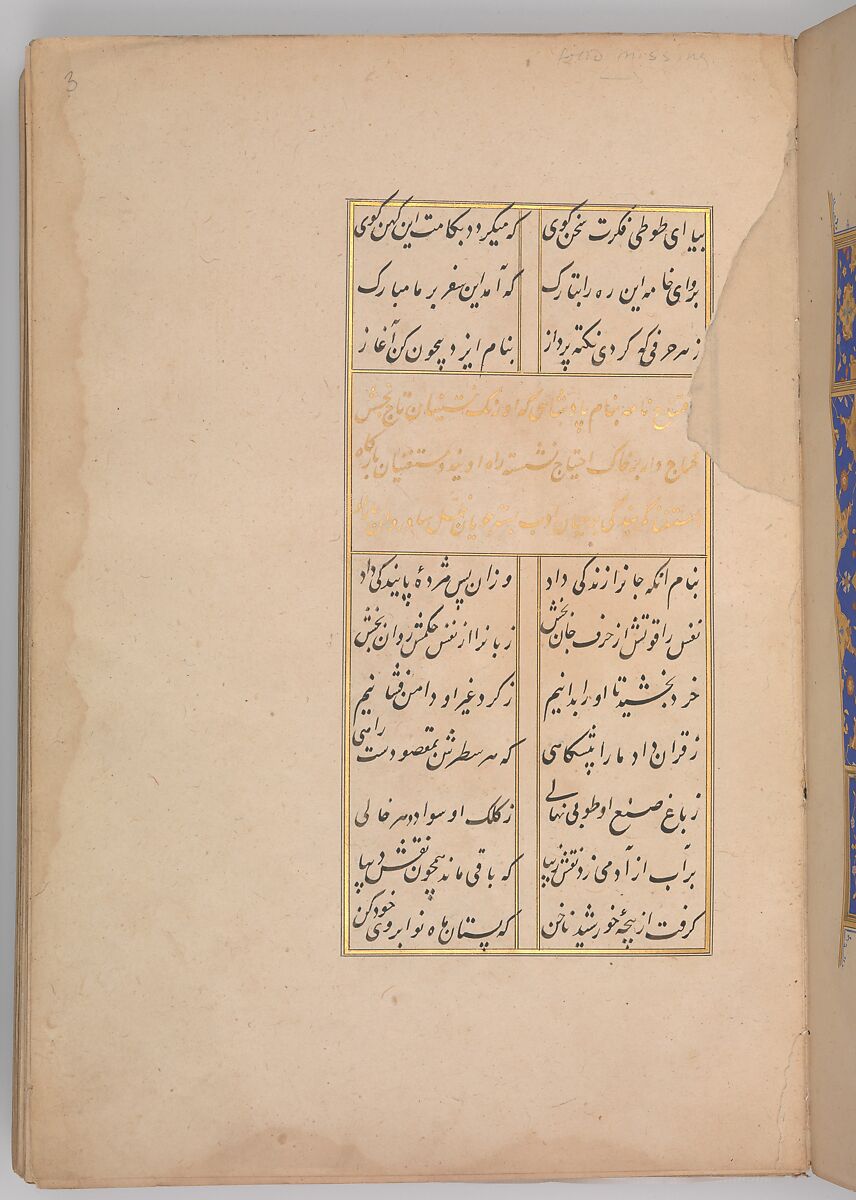 3
folio missing
بیا ای طوطی فکرت سخن گوی که میگردد بکامت این کهن گوی
بروای خامه این ره را بتارک که آمد این سفر بر ما مبارک
زهر حرفی که کردی نکته پرداز بنام ایزد بیچون کن آغاز
نامه بنام پادشاهی که اورنک نشینان تاج بخش
بر خاک احتیاج نشسته راه اویند و مستغنیان بارگاه
ادب
بنام انکه جانرا زندگی داد وزان پس مژدهٔ پایندگی داد
نفس را قوتش از حرف جان بخش زبانرا از نفس حکمش روان بخش
خرد بخشید تا او را بدانیم زگرد غیر او دامن فشانیم
زقران داد ما را پیشگاهی که هر سطرش بمقصودست راهی
زباغ صنع او طوبی نهالی زکلک او سواد دهر خالی
برآب از آدمی زد نقش زیبا که باقی ماند همچون نقش دیبا
گرفت از پنجهٔ خورشید ناخن که پستان ماه نو ابروی خود کن